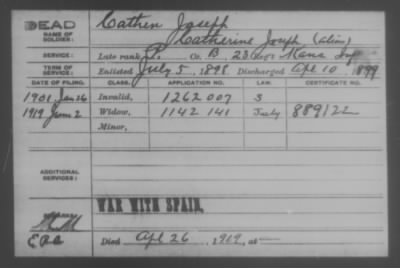 DEAD
NAME OF SOLDIER:
Cathen Joseph
Catherine Joseph (alias)
SERVICE:
Late rank, Co. B, 23 Reg't Kans Inf
TERM OF SERVICE:
Enlisted July 5, 1898 Discharged Apl 10, 1899
DATE OF FILING. CLASS. APPLICATION NO. LAW. CERTIFICATE NO.
1901 Jan 26 Invalid, 1262 007 S
1919 June 2 Widow, 1142 141 889122
Minor,
ADDITIONAL SERVICES:
WAR WITH SPAIN.
Died Apl 26, 1919, at —